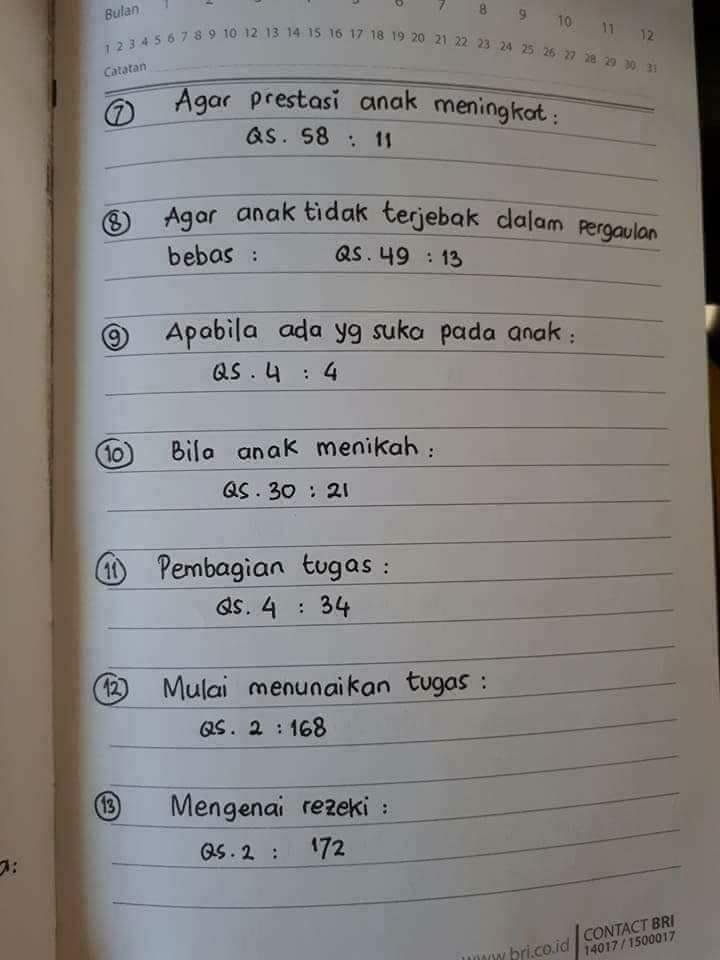 Bulan 1 2 3 4 5 6 7 8 9 10 11 12
1 2 3 4 5 6 7 8 9 10 12 13 14 15 16 17 18 19 20 21 22 23 24 25 26 27 28 29 30 31
Catatan
7 Agar prestasi anak meningkat :
QS. 58 : 11
8 Agar anak tidak terjebak dalam pergaulan
bebas : QS. 49 : 13
9 Apabila ada yg suka pada anak :
QS. 4 : 4
10 Bila anak menikah :
QS. 30 : 21
11 Pembagian tugas :
QS. 4 : 34
12 Mulai menunaikan tugas :
QS. 2 : 168
13 Mengenai rezeki :
QS. 2 : 172
www.bri.co.id
CONTACT BRI
14017 / 1500017